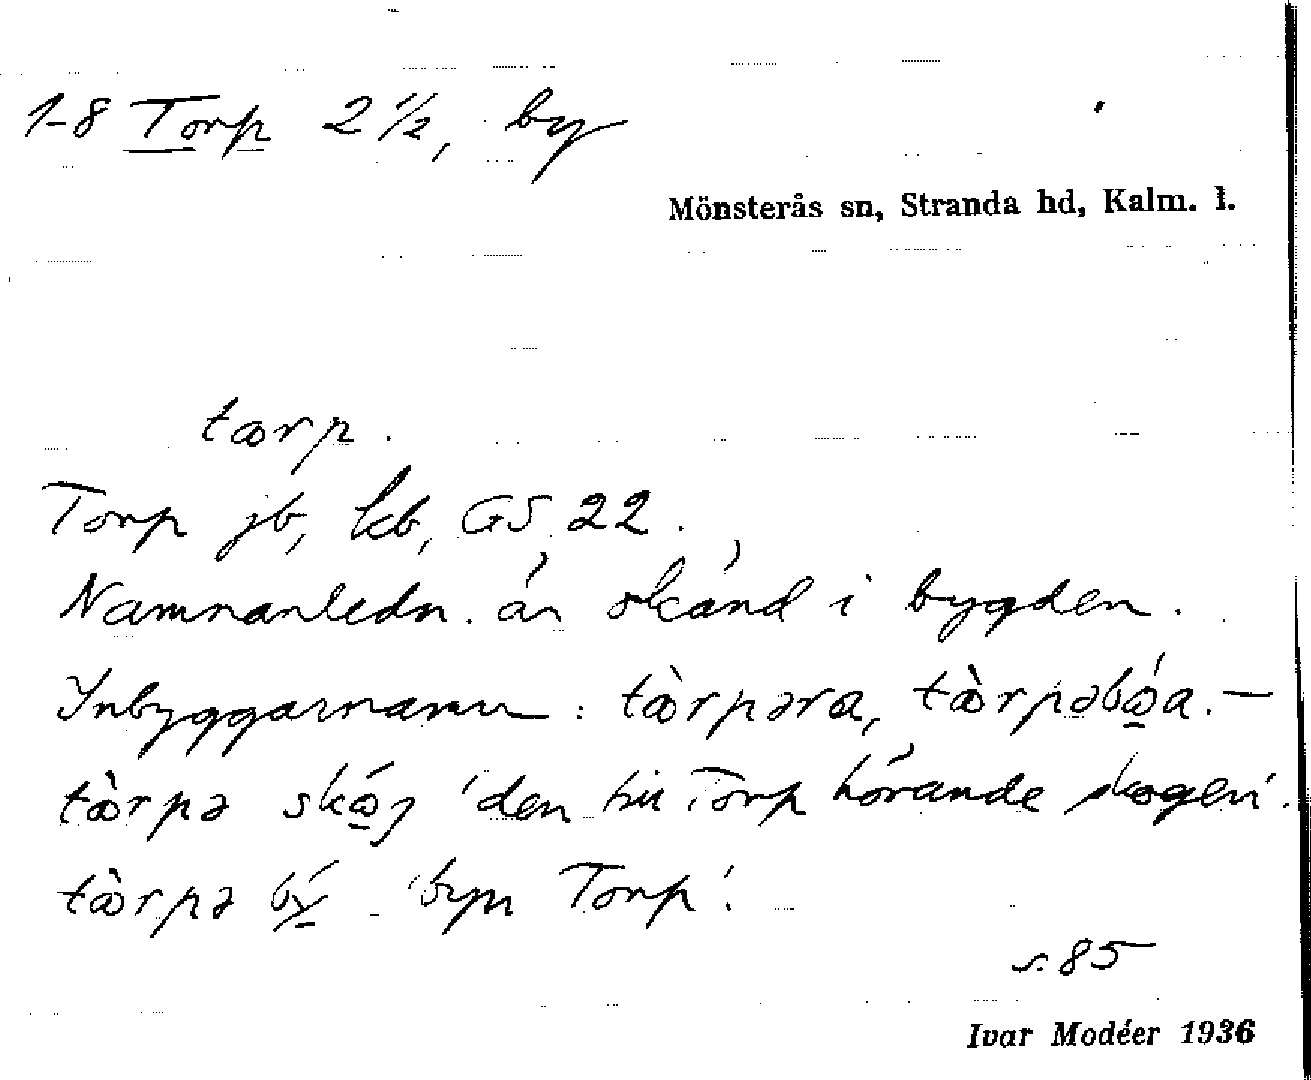 1-8 Torp 2 1/2, by
Mönsterås sn, Stranda hd, Kalm. l.
tœrp.
Torp jb, kb, GS 22.
Namnanledn. är okänd i bygden.
Inbyggarnamn: tœ̀rpəra, tœ̀rpəbœ́a. —
tœ̀rpə skœ́g 'den till Torp hörande skogen'.
tœ̀rpə bý 'byn Torp'.
s. 85
Ivar Modéer 1936